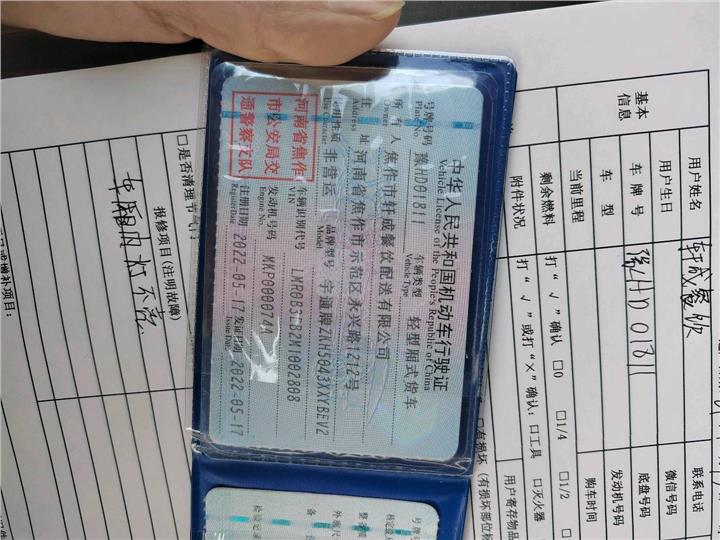 中华人民共和国机动车行驶证
Vehicle License of the People's Republic of China
号牌号码 豫HD01811 车辆类型 轻型厢式货车
Plate No. Vehicle Type
所有人 焦作市轩成餐饮配送有限公司
Owner
住址 河南省焦作市示范区永兴路1212号
Address
使用性质 非营运 品牌型号 宇通牌ZKH5043XXYBEV2
Use Character Model
河南省焦作
市公安局交
通警察支队
车辆识别代号 LMR0B3EB2M1002808
VIN
发动机号码 MKP000074A
Engine No.
注册日期 2022-05-17 发证日期 2022-05-17
Register Date Issue Date
基本
信息
用户姓名 轩成餐饮 联系电话
用户生日 微信号码
车牌号 豫HD01811 底盘号码
车型 发动机号码
当前里程 购车时间
剩余燃料 打“√”确认 □0 □1/4 □1/2
附件状况 打“√”或打“×”确认：□工具 □灭火器
用户寄存物品
□有损坏（有损坏部位标
□是否清理节气门
报修项目（注明故障）
车厢内灯不亮
或增补项目：